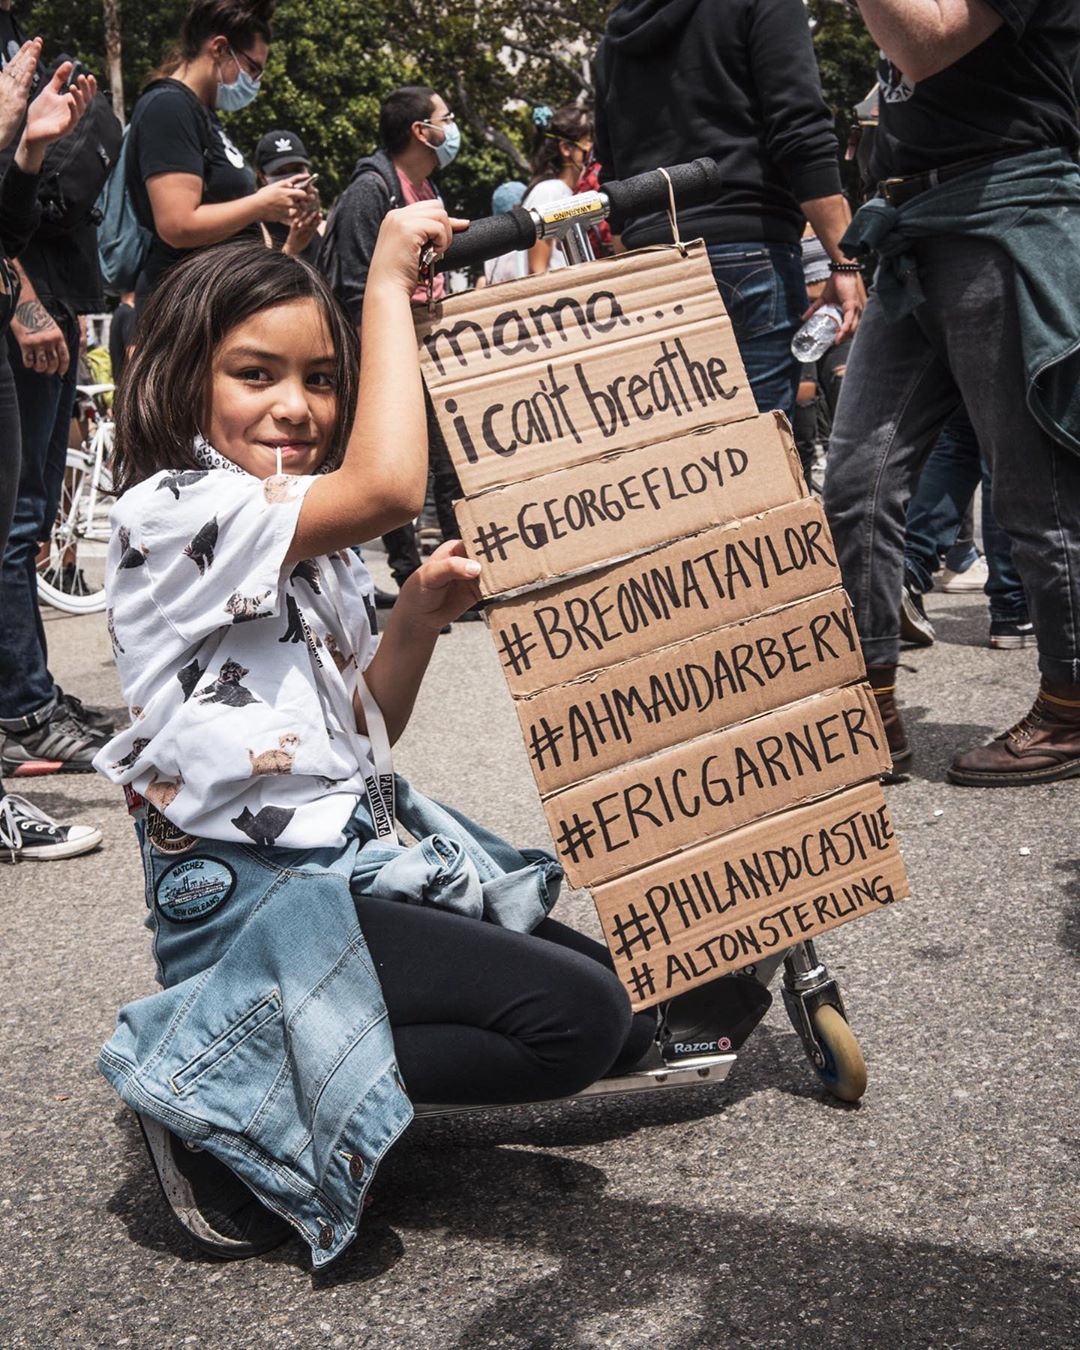 WARNING
mama...
i can't breathe
#GEORGEFLOYD
#BREONNATAYLOR
#AHMAUDARBERY
#ERICGARNER
#PHILANDOCASTILE
#ALTONSTERLING
NATCHEZ
NEW ORLEANS
Razor